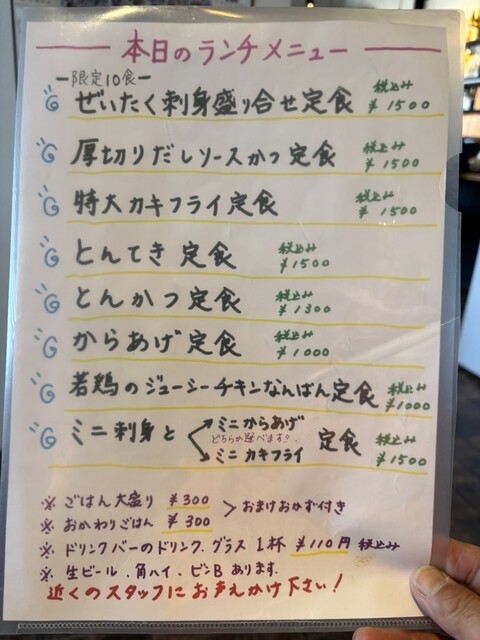 本日のランチメニュー
ー限定10食ー
ぜいたく刺身盛り合せ定食 税込み ¥1500
厚切りだしソースかつ定食 税込み ¥1500
特大カキフライ定食 税込み ¥1500
とんてき定食 税込み ¥1500
とんかつ定食 税込み ¥1300
からあげ定食 税込み ¥1000
若鶏のジューシーチキンなんばん定食 税込み ¥1000
ミニ刺身と ミニからあげ どちらか選べます♡ ミニカキフライ 定食 税込み ¥1500
※ごはん大盛り ¥300
※おかわりごはん ¥300 >おまけおかず付き
※ドリンクバーのドリンク、グラス1杯 ¥110円 税込み
※生ビール、角ハイ、ビンBあります。
近くのスタッフにお声えかけ下さい!